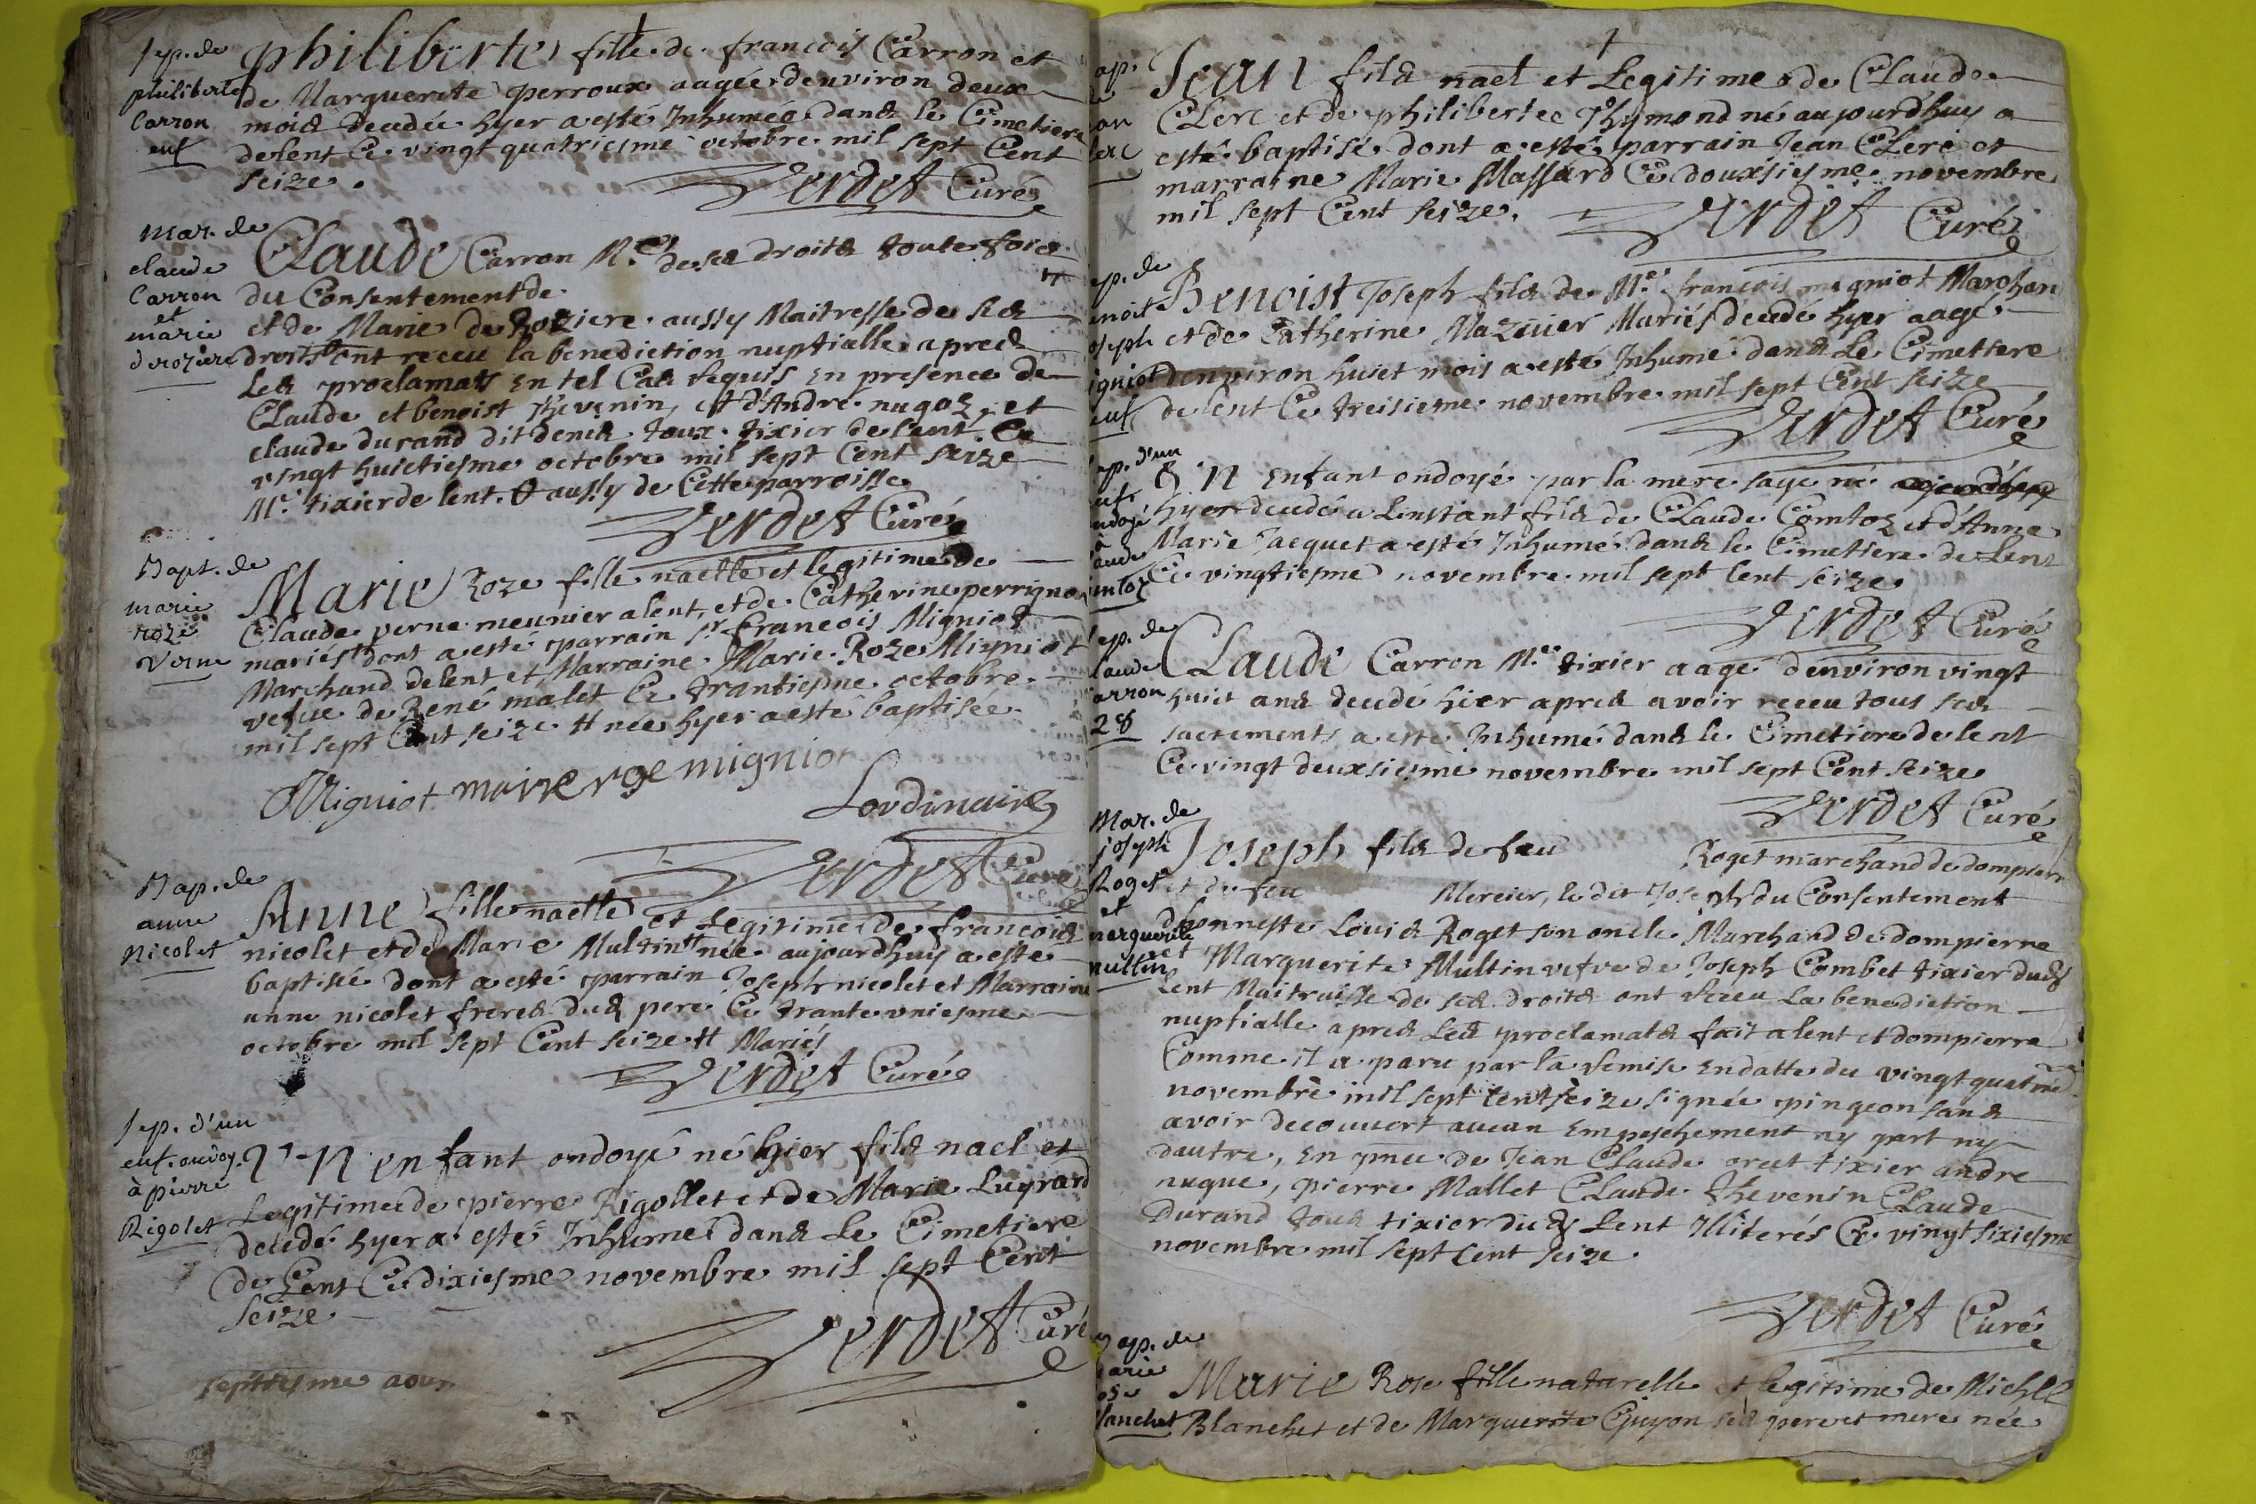 Sep. de
philiberte
Carron
enf
philiberte fille de francois Carron et
de Marguerite perroux aagée denviron deux
mois decedée hyer a esté Inhumée dans le Cimetiere
delent Ce vingt quatriesme octobre mil sept Cent
seize.
Verdet Curé
Mar. de
claude
Carron
et
marie
deroziere
Claude Carron Me. de ses droits toute fois
du Consentement de
et de Marie de Roziere aussy Maitresse de ses
droits ont receu la benediction nuptialle apres
les proclamats En tel Cas Requis En presence de
Claude et benoist Thevenin, et d'Andre nugoz, et
claude durand dit denis toux tixier de lent Ce
vingt huictiesme octobre mil sept Cent seize
Me. tixier de lent. # aussy de Cette parroisse
Verdet Curé
Bapt. de
marie
roze
Verne
Marie Roze fille naelle et legitime de
Claude verne meunier a lent, et de Catherine perrignon
mariés # dont a esté parrain sr. francois Migniot
Marchand delent et Marraine Marie Roze Migniot
vefve de René malet Ce trantiesme octobre
mil sept Cent seize # née hyer a esté baptisée
Migniot marie roze migniot
Lordinaire
Verdet Curé
Bap. de
anne
Nicolet
Anne fille naelle et Legitime de francois
nicolet et de Marie Multin # née aujourdhuy a esté
baptisée dont a esté parrain Joseph nicolet et Marraine
anne nicolet freres dud pere Ce trante uniesme
octobre mil sept Cent seize # Mariés
Verdet Curé
Sep. d'un
enf. ondoy.
à pierre
Rigolet
Un enfant ondoyé né hier fils nael et
Legitime de pierre Rigollet et de Marie Luyrard
decedé hyer a esté Inhumé dans Le Cimetiere
de Lent Ce dixiesme novembre mil sept Cent
seize
Verdet Curé
septiesme aoust
Jean fils nael et Legitime de Claude
Clerc et de philiberte Thymond né aujourd'huy a
esté baptisé dont a esté parrain Jean Clerc et
marraine Marie Massard Ce douxsiesme novembre
mil sept Cent seize.
Verdet Curé
Benoist Joseph fils de Me. francois migniot Marchan
et de Catherine Mazuier Mariés decedé hyer aagé
denviron huict mois a esté Inhumé dans Le Cimetiere
de lent Ce treisiesme novembre mil sept Cent seize
Verdet Curé
Un Enfant ondoyé par la mere sage né aujourdhuy
hyer decedé a Linstant fils de Claude Comtoz et d'Anne
Marie Jacquet a esté Inhumé dans le Cimetiere de Lent
Ce vingtiesme novembre mil sept Cent seize
Verdet Curé
Sep. de
Carron
28
Claude Carron Me. tixier aagé denviron vingt
huict ans decedé hier apres avoir receu tous ses
sacrements a esté Inhumé dans le Cimetiere de lent
Ce vingt deuxsiesme novembre mil sept Cent seize
Verdet Curé
Mar. de
joseph
Roget
et
marguerite
multin
Joseph fils de feu Roget marchand de dompierre
et de feu Mercier, le dit Joseph du Consentement
dhonneste Louis Roget son oncle Marchand de dompierre
et Marguerite Multin vefve de Joseph Combet tixier dud
Lent Maitraisse de ses droits ont Receu La benediction
nuptialle apres Les proclamats fait a lent et dompierre
Comme il a paru par la Remise En datte du vingt quatme
novembre mil sept Cent seize signée pingeon sans
avoir decouvert aucun Empeschement ny part ny
dautre, En pnce de Jean Claude orcet tixier andre
nugue, pierre Mallet Claude Thevenin Claude
Durand tous tixier dud Lent Illiterés Ce vingt sixiesme
novembre mil sept cent seize.
Verdet Curé
Marie Rose fille naturelle et legitime de Michel
Blanchet et de Marguerite Guyon ses pere et mere née